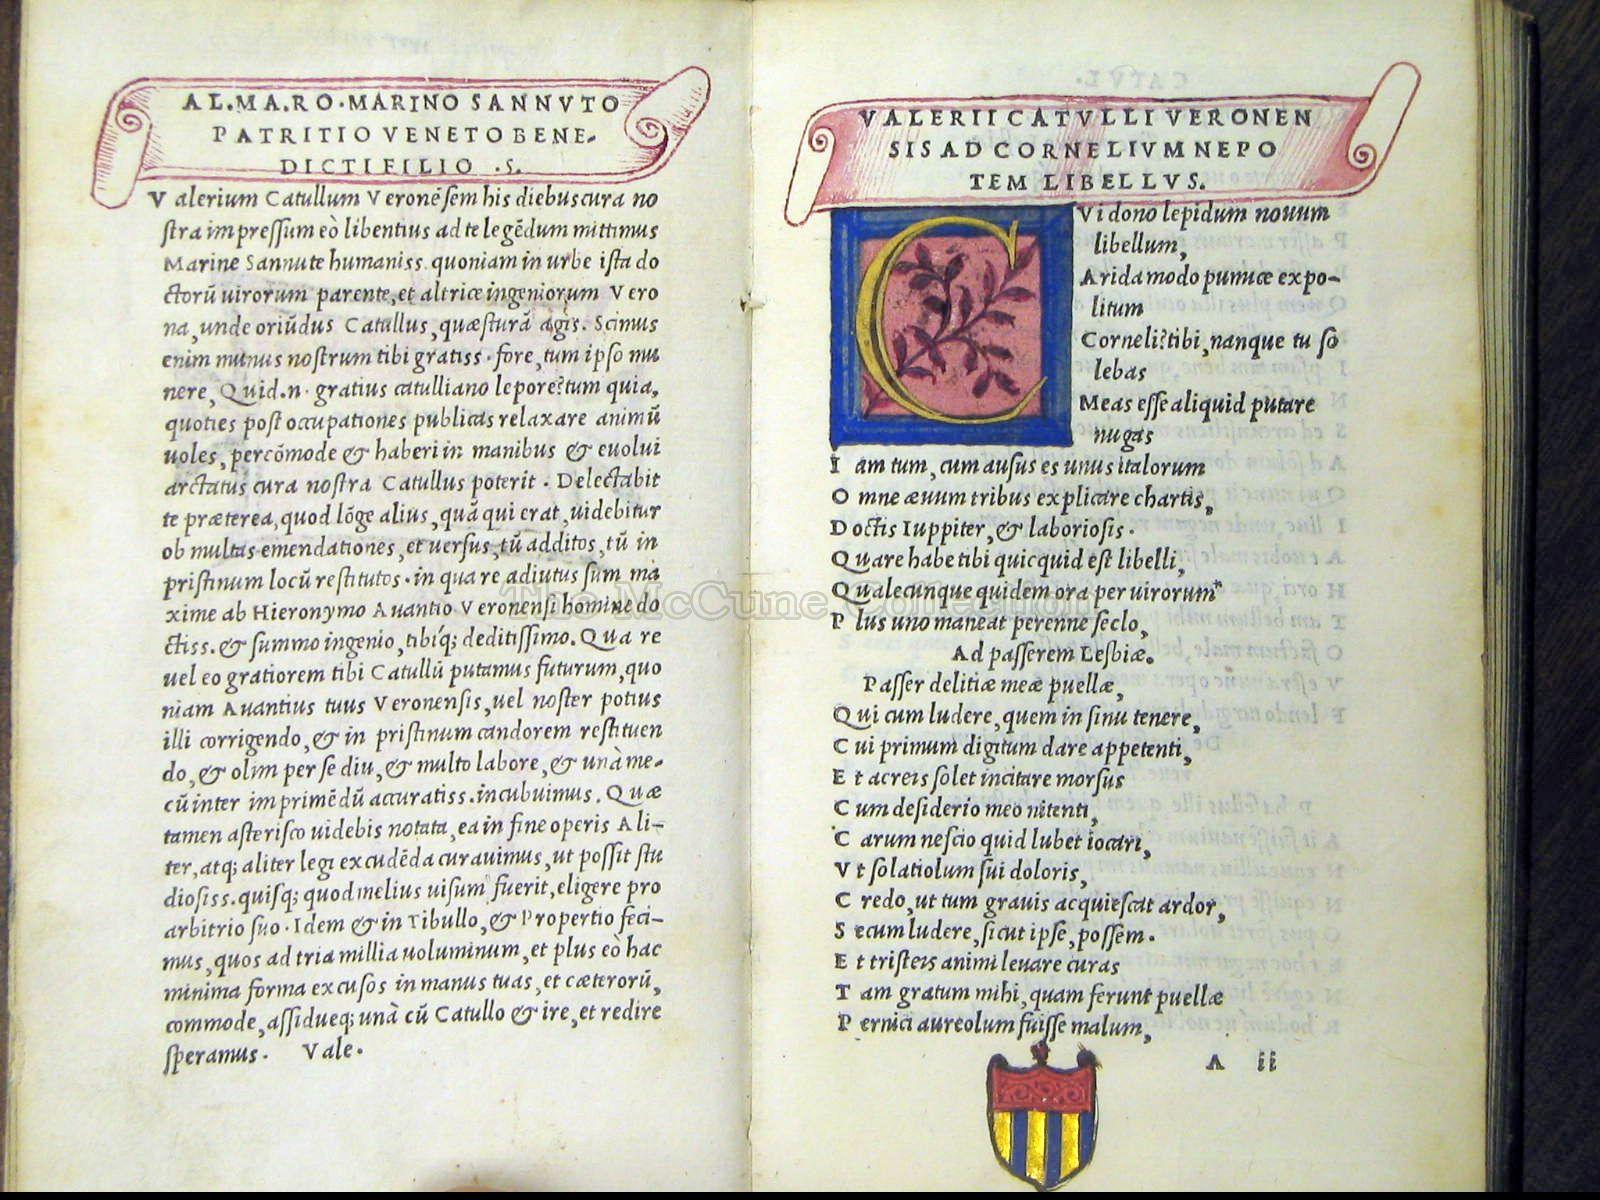 AL.MA.RO.MARINO SANNVTO
PATRITIO VENETO BENE-
DICTI FILIO .S.
Valerium Catullum Veronēsem his diebus cura no
stra impressum eò libentius ad te legēdum mittimus
Marine Sannute humaniss. quoniam in urbe ista do
ctorū uirorum parente, et altrice ingeniorum Vero
na, unde oriūdus Catullus, quæsturā agis. Scimus
enim munus nostrum tibi gratiss. fore, tum ipso mu
nere, Quid.n. gratius catulliano lepore? tum quia,
quoties post occupationes publicas relaxare animū
uoles, percōmode & haberi in manibus & euolui
arctatus cura nostra Catullus poterit. Delectabit
te præterea, quod lōge alius, quā qui erat, uidebitur
ob multas emendationes, et uersus, tū additos, tū in
pristinum locū restitutos. in qua re adiutus sum ma
xime ab Hieronymo Auantio Veronensi homine do
ctiss. & summo ingenio, tibíq; deditissimo. Qua re
uel eo gratiorem tibi Catullū putamus futurum, quo
niam Auantius tuus Veronensis, uel noster potius
illi corrigendo, & in pristinum candorem restituen
do, & olim per se diu, & multo labore, & unà me-
cū inter imprimēdū accuratiss. incubuimus. Quæ
tamen asterisco uidebis notata, ea in fine operis Ali-
ter, atq; aliter legi excudēda curauimus, ut possit stu
diosiss. quisq; quod melius uisum fuerit, eligere pro
arbitrio suo. Idem & in Tibullo, & Propertio feci-
mus, quos ad tria millia uoluminum, et plus eò hac
minima forma excusos in manus tuas, et cæterorū,
commode, assidueq; unà cū Catullo & ire, et redire
speramus. Vale.
VALERII CATVLLI VERONEN
SIS AD CORNELIVM NEPO
TEM LIBELLVS.
CVi dono lepidum nouum
libellum,
Arida modo pumice expo-
litum
Corneli? tibi, nanque tu so
lebas
Meas esse aliquid putare
nugas
Iam tum, cum ausus es unus italorum
Omne æuum tribus explicare chartis,
Doctis Iuppiter, & laboriosis.
Quare habe tibi quicquid est libelli,
Qualecunque quidem ora per uirorum*
Plus uno maneat perenne seclo,
Ad passerem Lesbiæ.
Passer delitiæ meæ puellæ,
Qui cum ludere, quem in sinu tenere,
Cui primum digitum dare appetenti,
Et acreis solet incitare morsus
Cum desiderio meo nitenti,
Carum nescio quid lubet iocari,
Vt solatiolum sui doloris,
Credo, ut tum grauis acquiescat ardor,
Secum ludere, sicut ipse, possem.
Et tristeis animi leuare curas
Tam gratum mihi, quam ferunt puellæ
Pernici aureolum fuisse malum,
A ii
The McCune Collection